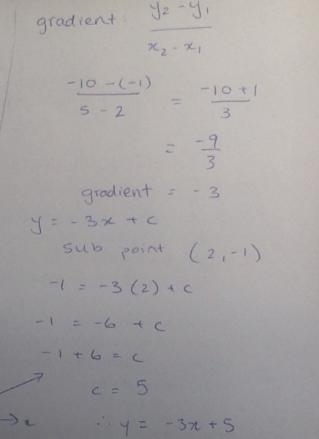 gradient: y₂ - y₁ / x₂ - x₁
-10 - (-1) / 5 - 2 = -10 + 1 / 3
= -9 / 3
gradient = -3
y = -3x + c
sub point (2, -1)
-1 = -3(2) + c
-1 = -6 + c
-1 + 6 = c
c = 5
∴ y = -3x + 5